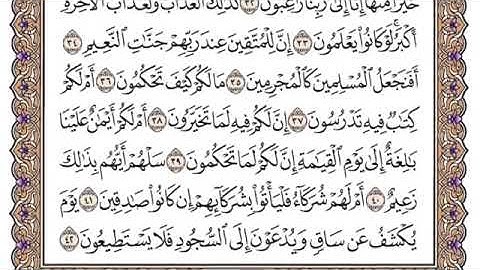 خَيۡرٗا مِّنۡهَآ إِنَّآ إِلَىٰ رَبِّنَا رَٰغِبُونَ ٣٢ كَذَٰلِكَ ٱلۡعَذَابُۖ وَلَعَذَابُ ٱلۡأٓخِرَةِ
أَكۡبَرُۚ لَوۡ كَانُواْ يَعۡلَمُونَ ٣٣ إِنَّ لِلۡمُتَّقِينَ عِندَ رَبِّهِمۡ جَنَّٰتِ ٱلنَّعِيمِ ٣٤
أَفَنَجۡعَلُ ٱلۡمُسۡلِمِينَ كَٱلۡمُجۡرِمِينَ ٣٥ مَا لَكُمۡ كَيۡفَ تَحۡكُمُونَ ٣٦ أَمۡ لَكُمۡ
كِتَٰبٞ فِيهِ تَدۡرُسُونَ ٣٧ إِنَّ لَكُمۡ فِيهِ لَمَا تَخَيَّرُونَ ٣٨ أَمۡ لَكُمۡ أَيۡمَٰنٌ عَلَيۡنَا
بَٰلِغَةٌ إِلَىٰ يَوۡمِ ٱلۡقِيَٰمَةِ إِنَّ لَكُمۡ لَمَا تَحۡكُمُونَ ٣٩ سَلۡهُمۡ أَيُّهُم بِذَٰلِكَ
زَعِيمٌ ٤٠ أَمۡ لَهُمۡ شُرَكَآءُ فَلۡيَأۡتُواْ بِشُرَكَآئِهِمۡ إِن كَانُواْ صَٰدِقِينَ ٤١ يَوۡمَ
يُكۡشَفُ عَن سَاقٖ وَيُدۡعَوۡنَ إِلَى ٱلسُّجُودِ فَلَا يَسۡتَطِيعُونَ ٤٢